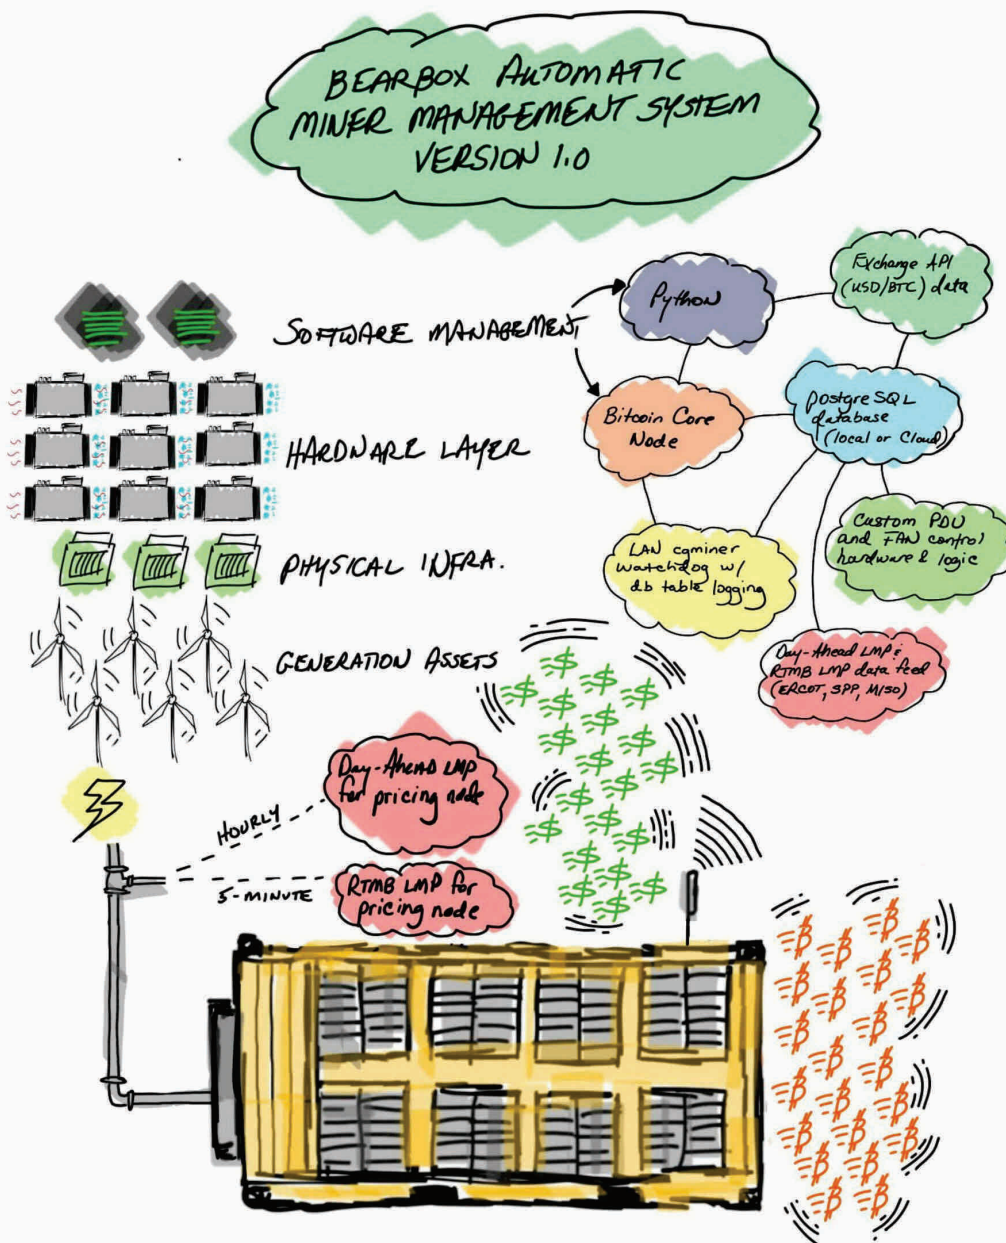 BEARBOX AUTOMATIC
MINER MANAGEMENT SYSTEM
VERSION 1.0
SOFTWARE MANAGEMENT
HARDWARE LAYER
PHYSICAL INFRA.
GENERATION ASSETS
Python
Exchange API
(USD/BTC) data
Bitcoin Core
Node
PostgreSQL
database
(local or Cloud)
LAN cgminer
Watchdog w/
db table logging
Custom PDU
and FAN control
hardware & logic
Day-Ahead LMP &
RTMB LMP data feed
(ERCOT, SPP, MISO)
HOURLY
Day-Ahead LMP
for pricing node
5-MINUTE
RTMB LMP for
pricing node